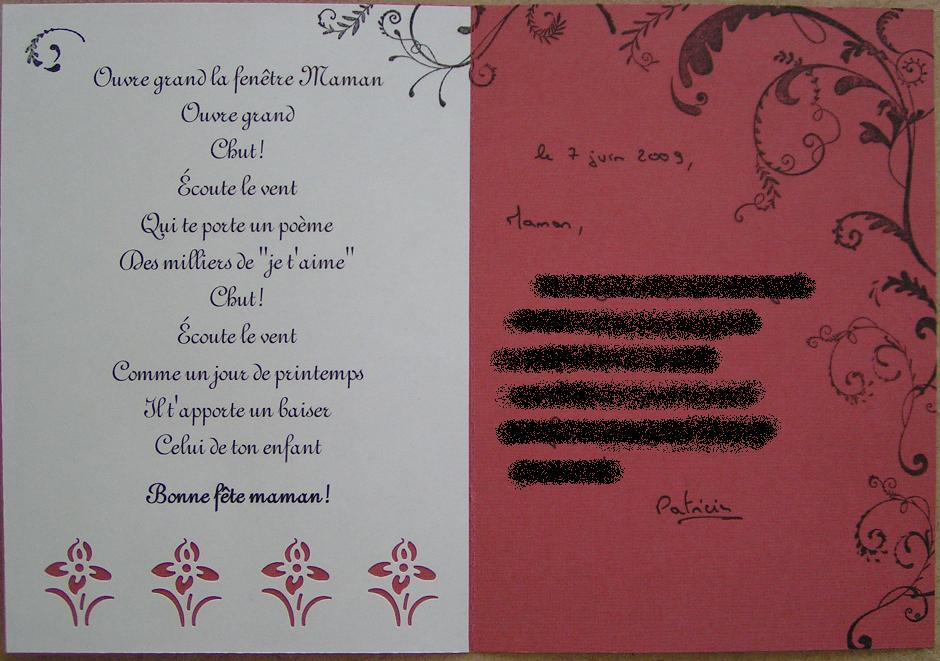 Ouvre grand la fenêtre Maman
Ouvre grand
Chut!
Écoute le vent
Qui te porte un poème
Des milliers de "je t'aime"
Chut!
Écoute le vent
Comme un jour de printemps
Il t'apporte un baiser
Celui de ton enfant
Bonne fête maman!
le 7 juin 2009,
Maman,
Patricia